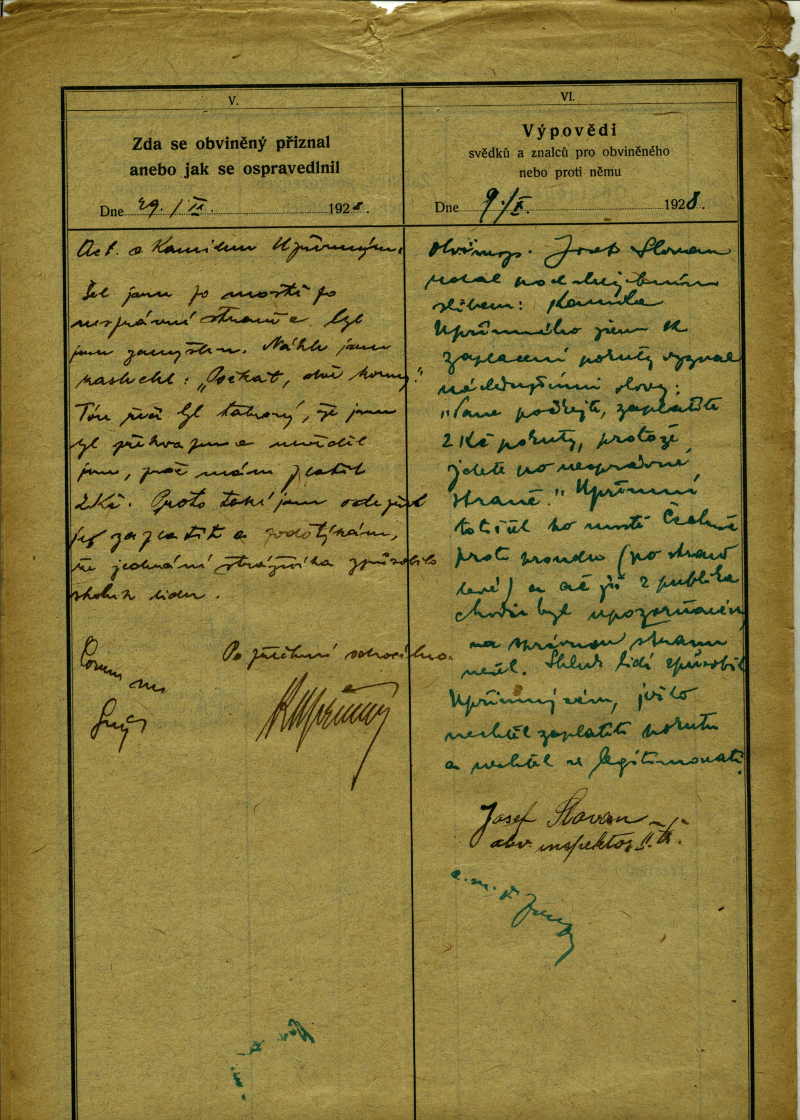 V.
Zda se obviněný přiznal
anebo jak se ospravedlnil
Dne 29./IX. 1928.
s Kamilem Upřímným.
Šel jsem po mostě po
nesprávné straně a byl
jsem zamyšlen. Náhle jsem
zaslechl: „Počkat, dvě koruny."
Tón řeči byl takový, že jsem
byl překvapen a nevěděl
jsem, proč mám platit
2 Kč. Proto také jsem odepřel
jej zaplatit a podotýkám,
že jednání strážníka způsobilo
shluk lidu.
Po přečtení
KUpřímný
VI.
Výpovědi
svědků a znalců pro obviněného
nebo proti němu
Dne 9./X. 1928.
Josef Slovan
udal pod služebním
slibem: Kamila
Upřímného jsem k
zaplacení pokuty vyzval
následujícími slovy:
"Pane počkejte, zaplatíte
2 Kč pokuty, protože
jdete po nesprávné
straně." Upřímný
totiž šel po mostě Čechově
proti proudu (po straně
levé) a ač již z publika
chodci byl upozorňován,
na správnou stranu
nešel. Shluk lidí způsobil
Upřímný sám, ježto
nechtěl zaplatiti pokutu
a nechtěl se legitimovati.
Josef Slovan
obv. inspektor